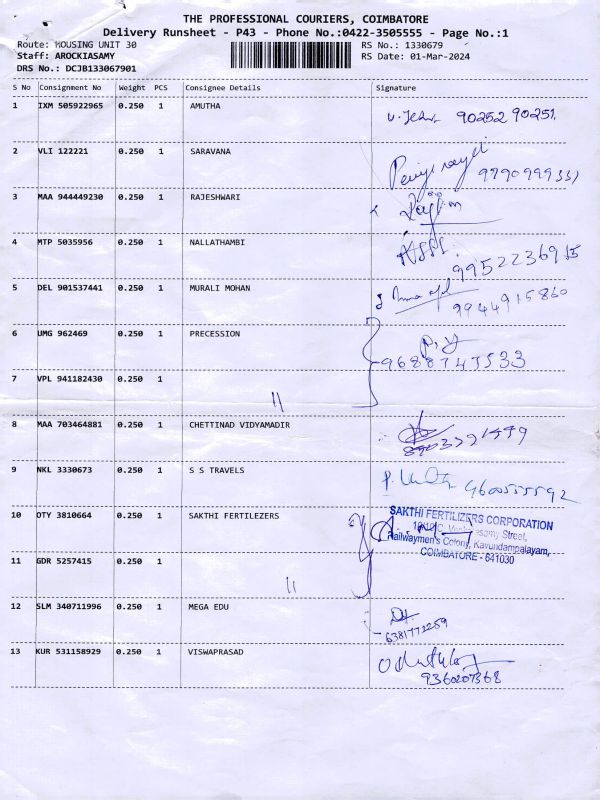 THE PROFESSIONAL COURIERS, COIMBATORE
Delivery Runsheet - P43 - Phone No.:0422-3505555 - Page No.:1
Route: HOUSING UNIT 30 RS No.: 1330679
Staff: AROCKIASAMY RS Date: 01-Mar-2024
DRS No.: DCJB133067901
S No Consignment No Weight PCS Consignee Details Signature
1 IXM 505922965 0.250 1 AMUTHA
90252 90251
2 VLI 122221 0.250 1 SARAVANA
3 MAA 944449230 0.250 1 RAJESHWARI
4 MTP 5035956 0.250 1 NALLATHAMBI
9952236915
5 DEL 901537441 0.250 1 MURALI MOHAN
9944915860
6 UMG 962469 0.250 1 PRECESSION
9688747533
7 VPL 941182430 0.250 1 "
8 MAA 703464881 0.250 1 CHETTINAD VIDYAMADIR
9 NKL 3330673 0.250 1 S S TRAVELS
9600555592
10 OTY 3810664 0.250 1 SAKTHI FERTILEZERS
SAKTHI FERTILIZERS CORPORATION
Street,
Railwaymen's Colony, Kavundampalayam,
COIMBATORE - 641030
11 GDR 5257415 0.250 1 "
12 SLM 340711996 0.250 1 MEGA EDU
6381771259
13 KUR 531158929 0.250 1 VISWAPRASAD
9360207368